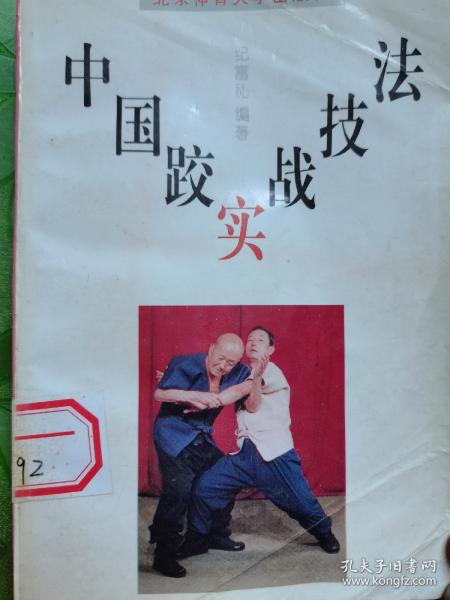 北京体育大学出版社
纪富礼 编著
中国跤实战技法
92
孔夫子旧书网
www.kongfz.com